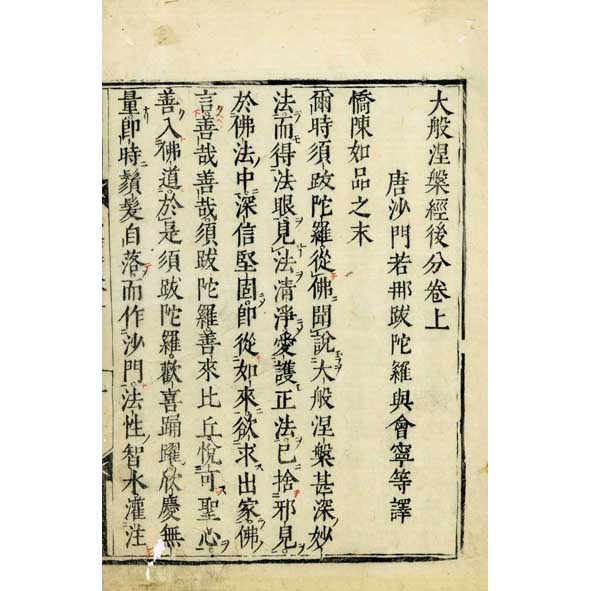 大般涅槃經後分卷上
唐沙門若那跋陀羅與會寧等譯
憍陳如品之末
爾時須跋陀羅從佛聞說大般涅槃甚深妙
法而得法眼見法清淨愛護正法已捨邪見
於佛法中深信堅固即從如來欲求出家佛
言善哉善哉須跋陀羅善來比丘悅可聖心
善入佛道於是須跋陀羅歡喜踊躍欣慶無
量即時鬚髮自落而作沙門法性智水灌注